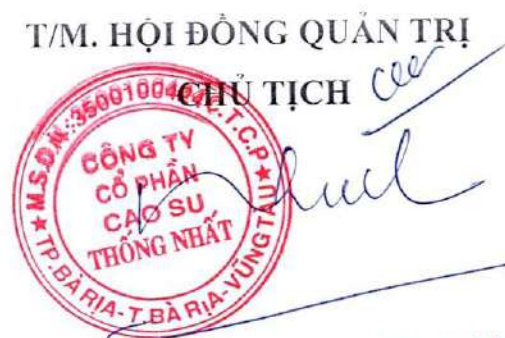 T/M. HỘI ĐỒNG QUẢN TRỊ
CHỦ TỊCH
CÔNG TY
CỔ PHẦN
CAO SU
THỐNG NHẤT
TP.BÀ RỊA-T.BÀ RỊA-VŨNG TÀU